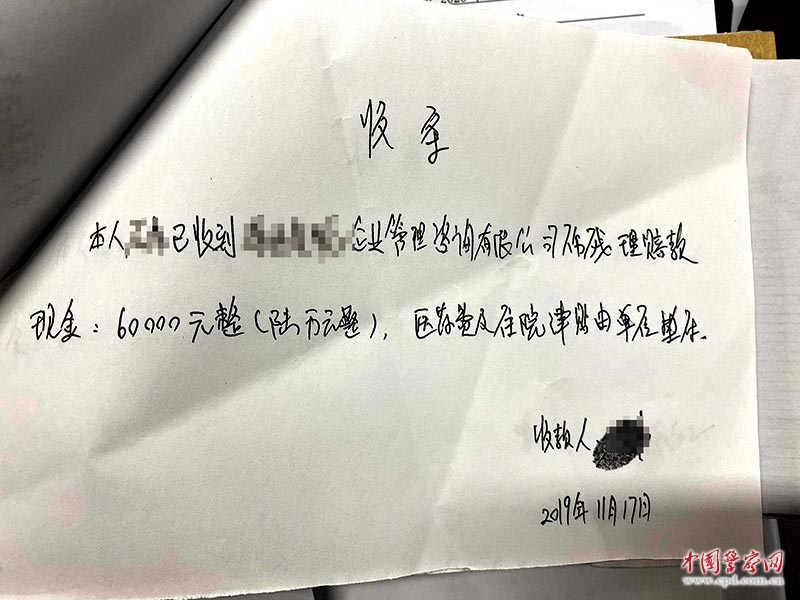 收条
本人 已收到 企业管理咨询有限公司伤残理赔款
现金：60000元整（陆万元整），医药费及住院津贴由单位垫付.
收款人
2019年11月17日
中国警察网
www.cpd.com.cn